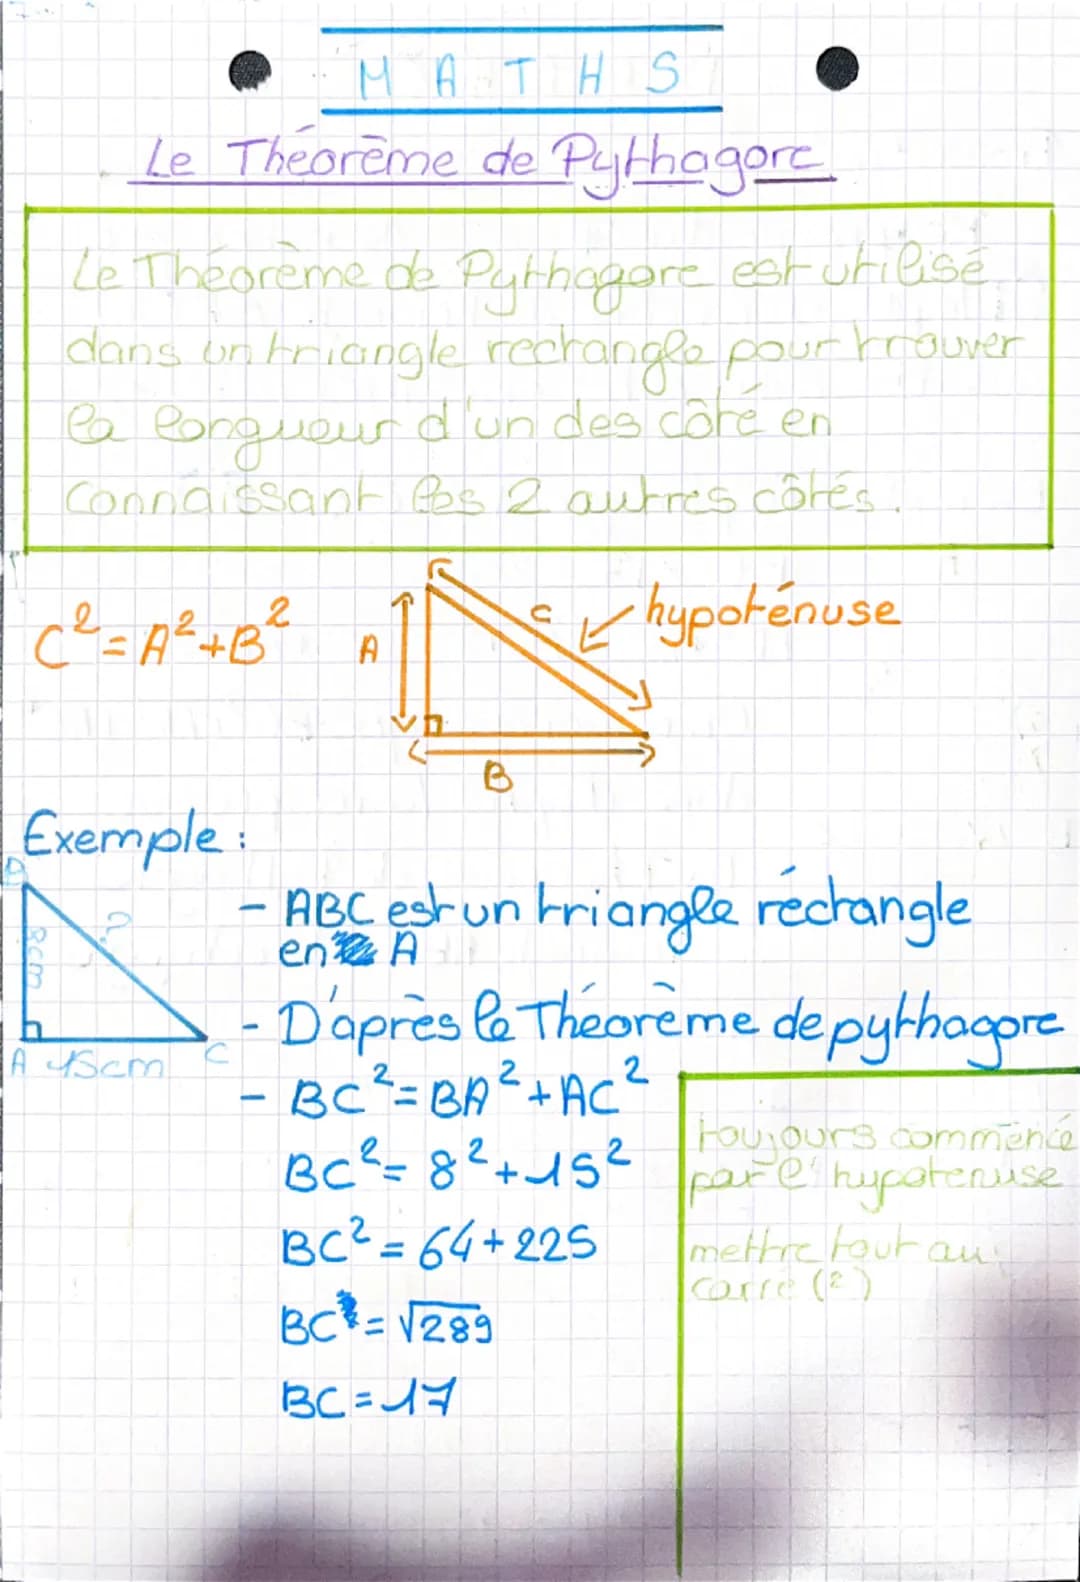 MATHS
Le Théorème de Pythagore
Le Théorème de Pythagore est utilisé
dans un triangle rectangle pour trouver
la longueur d'un des côté en
connaissant les 2 autres côtés.
C²=A²+B²
A
C
hypoténuse
B
Exemple :
B
8cm
?
A 15cm C
- ABC est un triangle réctangle
en A
- D'après le Théorème de pythagore
- BC²=BA²+AC²
BC²= 8²+15²
BC²=64+225
BC=√289
BC=17
toujours commencé
par l'hypotenuse
mettre tout au
carré (²)